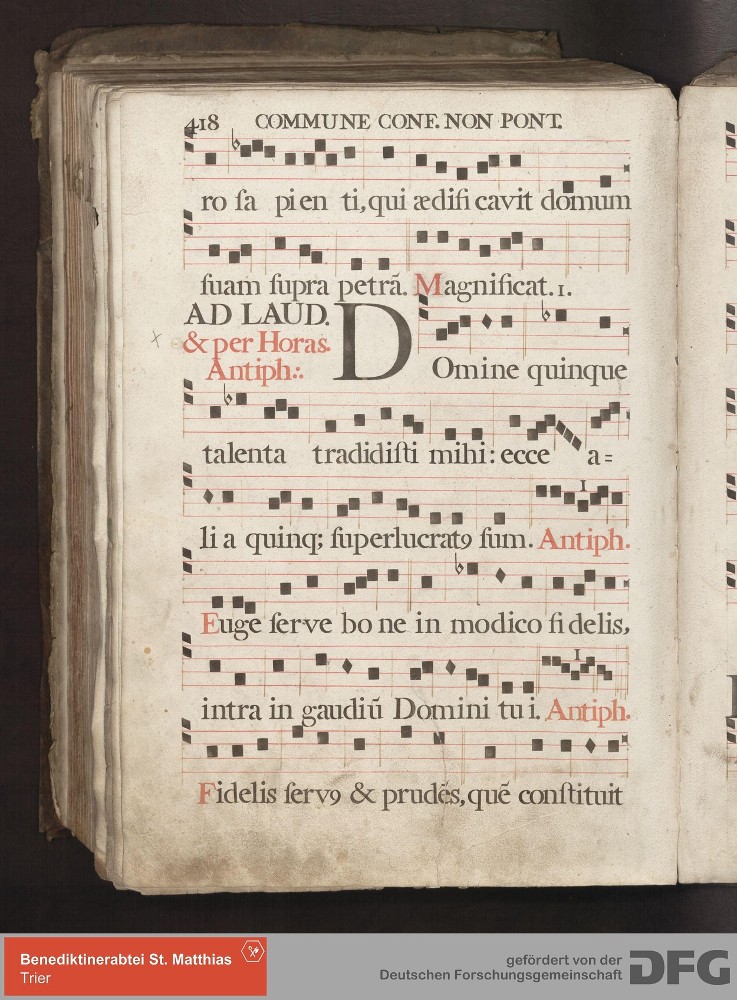 418 COMMUNE CONF. NON PONT.
ro ſa pi en ti, qui ædifi cavit domum
ſuam ſupra petrã. Magnificat. 1.
AD LAUD.
& per Horas.
Antiph.:
DOmine quinque
talenta tradidiſti mihi: ecce a=
li a quinq; ſuperlucrat9 ſum. Antiph.
1
Euge ſerve bo ne in modico fi delis,
intra in gaudiũ Domini tu i. Antiph.
1
Fidelis ſerv9 & prudẽs, quẽ conſtituit
Benediktinerabtei St. Matthias
Trier
gefördert von der
Deutschen Forschungsgemeinschaft
DFG